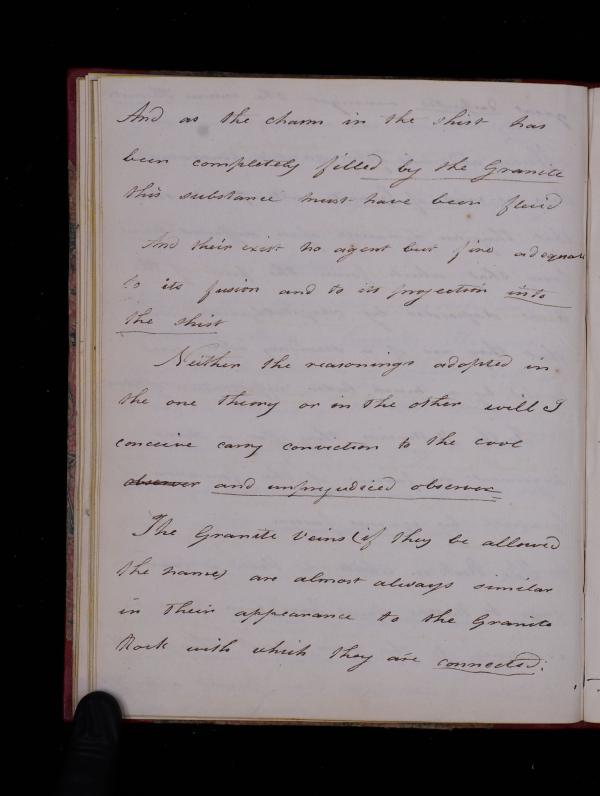 And as the chasm in the shist has
been completely filled by the Granite
this substance must have been fluid
And their exist no agent but fire adequate
to its fusion and to its projection into
the shist
Neither the reasonings adopted in
the one theory or in the other will I
conceive carry conviction to the cool
observer and unprejudiced observer
The Granite Veins (if they be allowed
the name) are almost always similar
in their appearance to the Granite
Rock with which they are connected: